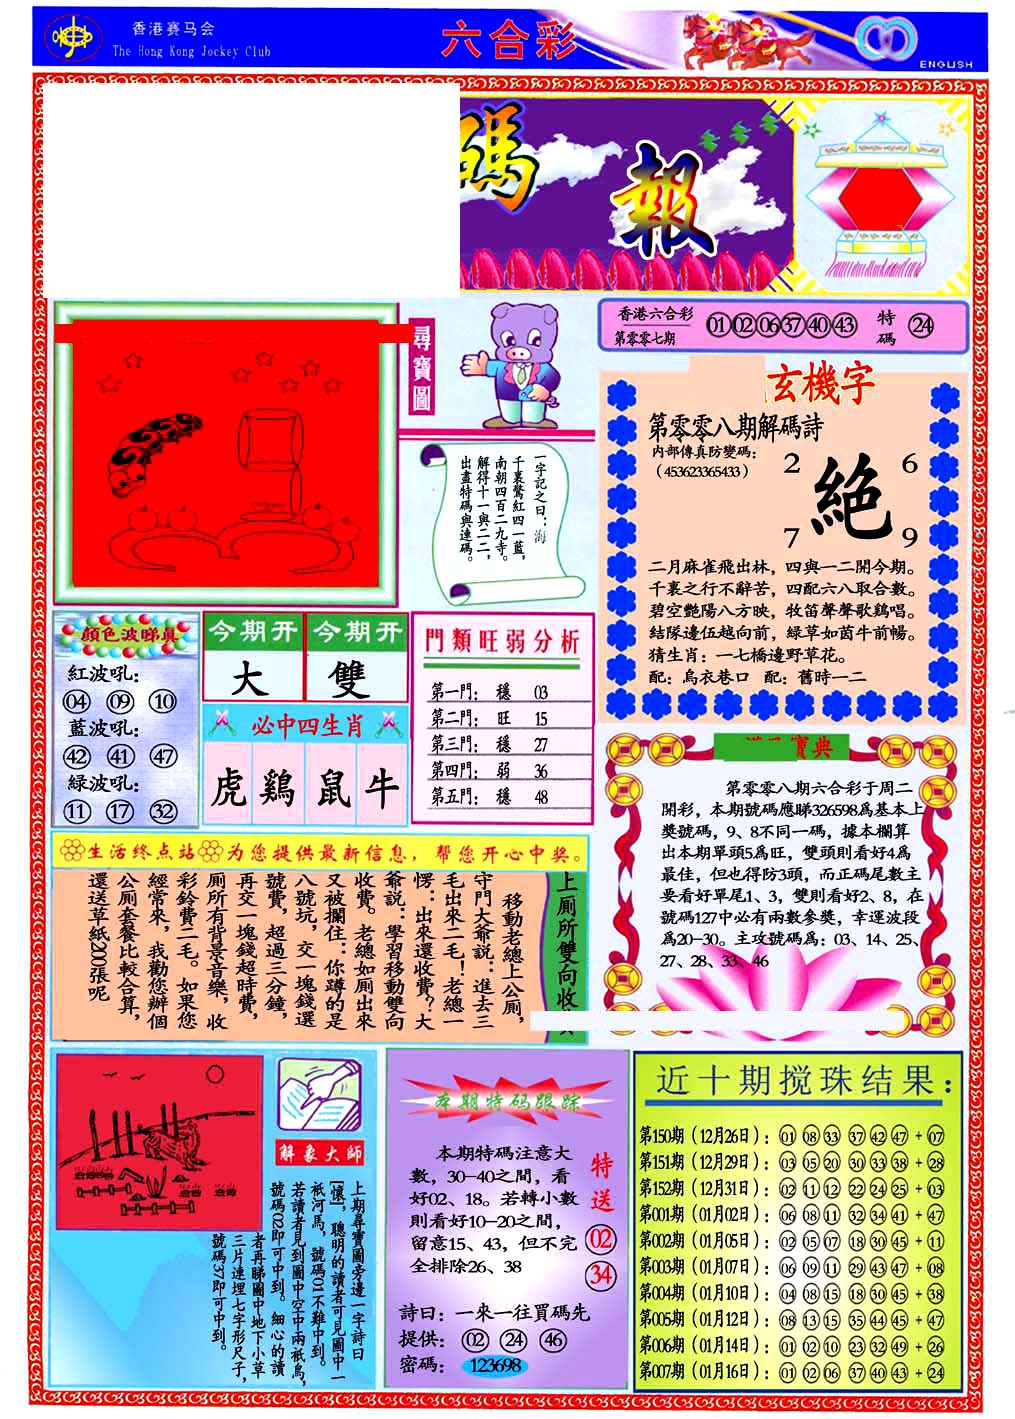 香港赛马会
The Hong Kong Jockey Club
六合彩
ENGLISH
碼報
尋寶圖
香港六合彩
第零零七期
01 02 06 37 40 43
特碼
24
一字記之曰：海
千裏鶯紅四一藍，
南朝四百二九寺。
解得十一與二二，
出盡特碼與連碼。
玄機字
第零零八期解碼詩
内部傳真防變碼：
（453623365433）
2 6
絕
7 9
二月麻雀飛出林，四與一二開今期。
千裏之行不辭苦，四配六八取合數。
碧空艷陽八方映，牧笛聲聲歌鷄唱。
結隊邊伍越向前，緑草如茵牛前暢。
猜生肖：一七橋邊野草花。
配：烏衣巷口 配：舊時一二
顔色波睇真
紅波吼：
04 09 10
藍波吼：
42 41 47
緑波吼：
11 17 32
今期开 今期开
大 雙
必中四生肖
虎 鷄 鼠 牛
門類旺弱分析
第一門： 穩 03
第二門： 旺 15
第三門： 穩 27
第四門： 弱 36
第五門： 穩 48
寶典
第零零八期六合彩于周二
開彩，本期號碼應睇326598爲基本上
獎號碼，9、8不同一碼，據本欄算
出本期單頭5爲旺，雙頭則看好4爲
最佳，但也得防3頭，而正碼尾數主
要看好單尾1、3，雙則看好2、8，在
號碼127中必有兩數參獎，幸運波段
爲20-30。主攻號碼爲：03、14、25、
27、28、33、46
生活终点站 为您提供最新信息，帮您开心中奖。
上厠所雙向收
移動老總上公厠，
守門大爺説：進去三
毛出來二毛！老總一
愣：出來還收費？大
爺説：學習移動雙向
收費。老總如厠出來
又被攔住：你蹲的是
八號坑，交一塊錢選
號費，超過三分鐘，
再交一塊錢超時費，
厠所有背景音樂，收
彩鈴費二毛。如果您
經常來，我勸您辦個
公厠套餐比較合算，
還送草紙200張呢
解象大師
上期尋寶圖旁邊一字詩曰
[懷]，聰明的讀者可見圖中一
衹河馬，號碼01不難中到。
若讀者見到圖中空中兩衹鳥，
號碼02即可中到。細心的讀
者再睇圖中地下小草
三片連埋七字形尺子，
號碼37即可中到。
本期特码跟踪
本期特碼注意大
數，30-40之間，看
好02、18。若轉小數
則看好10-20之間，
留意15、43，但不完
全排除26、38
特送
02
34
詩曰：一來一往買碼先
提供：02 24 46
密碼：123698
近十期搅珠结果：
第150期（12月26日）：01 08 33 37 42 47 + 07
第151期（12月29日）：03 05 20 30 33 38 + 28
第152期（12月31日）：02 11 12 22 24 25 + 03
第001期（01月02日）：06 08 11 32 34 41 + 47
第002期（01月05日）：02 05 07 18 30 45 + 11
第003期（01月07日）：06 09 11 29 43 47 + 08
第004期（01月10日）：04 08 15 18 30 45 + 38
第005期（01月12日）：08 13 15 35 44 45 + 47
第006期（01月14日）：01 02 10 23 32 49 + 26
第007期（01月16日）：01 02 06 37 40 43 + 24